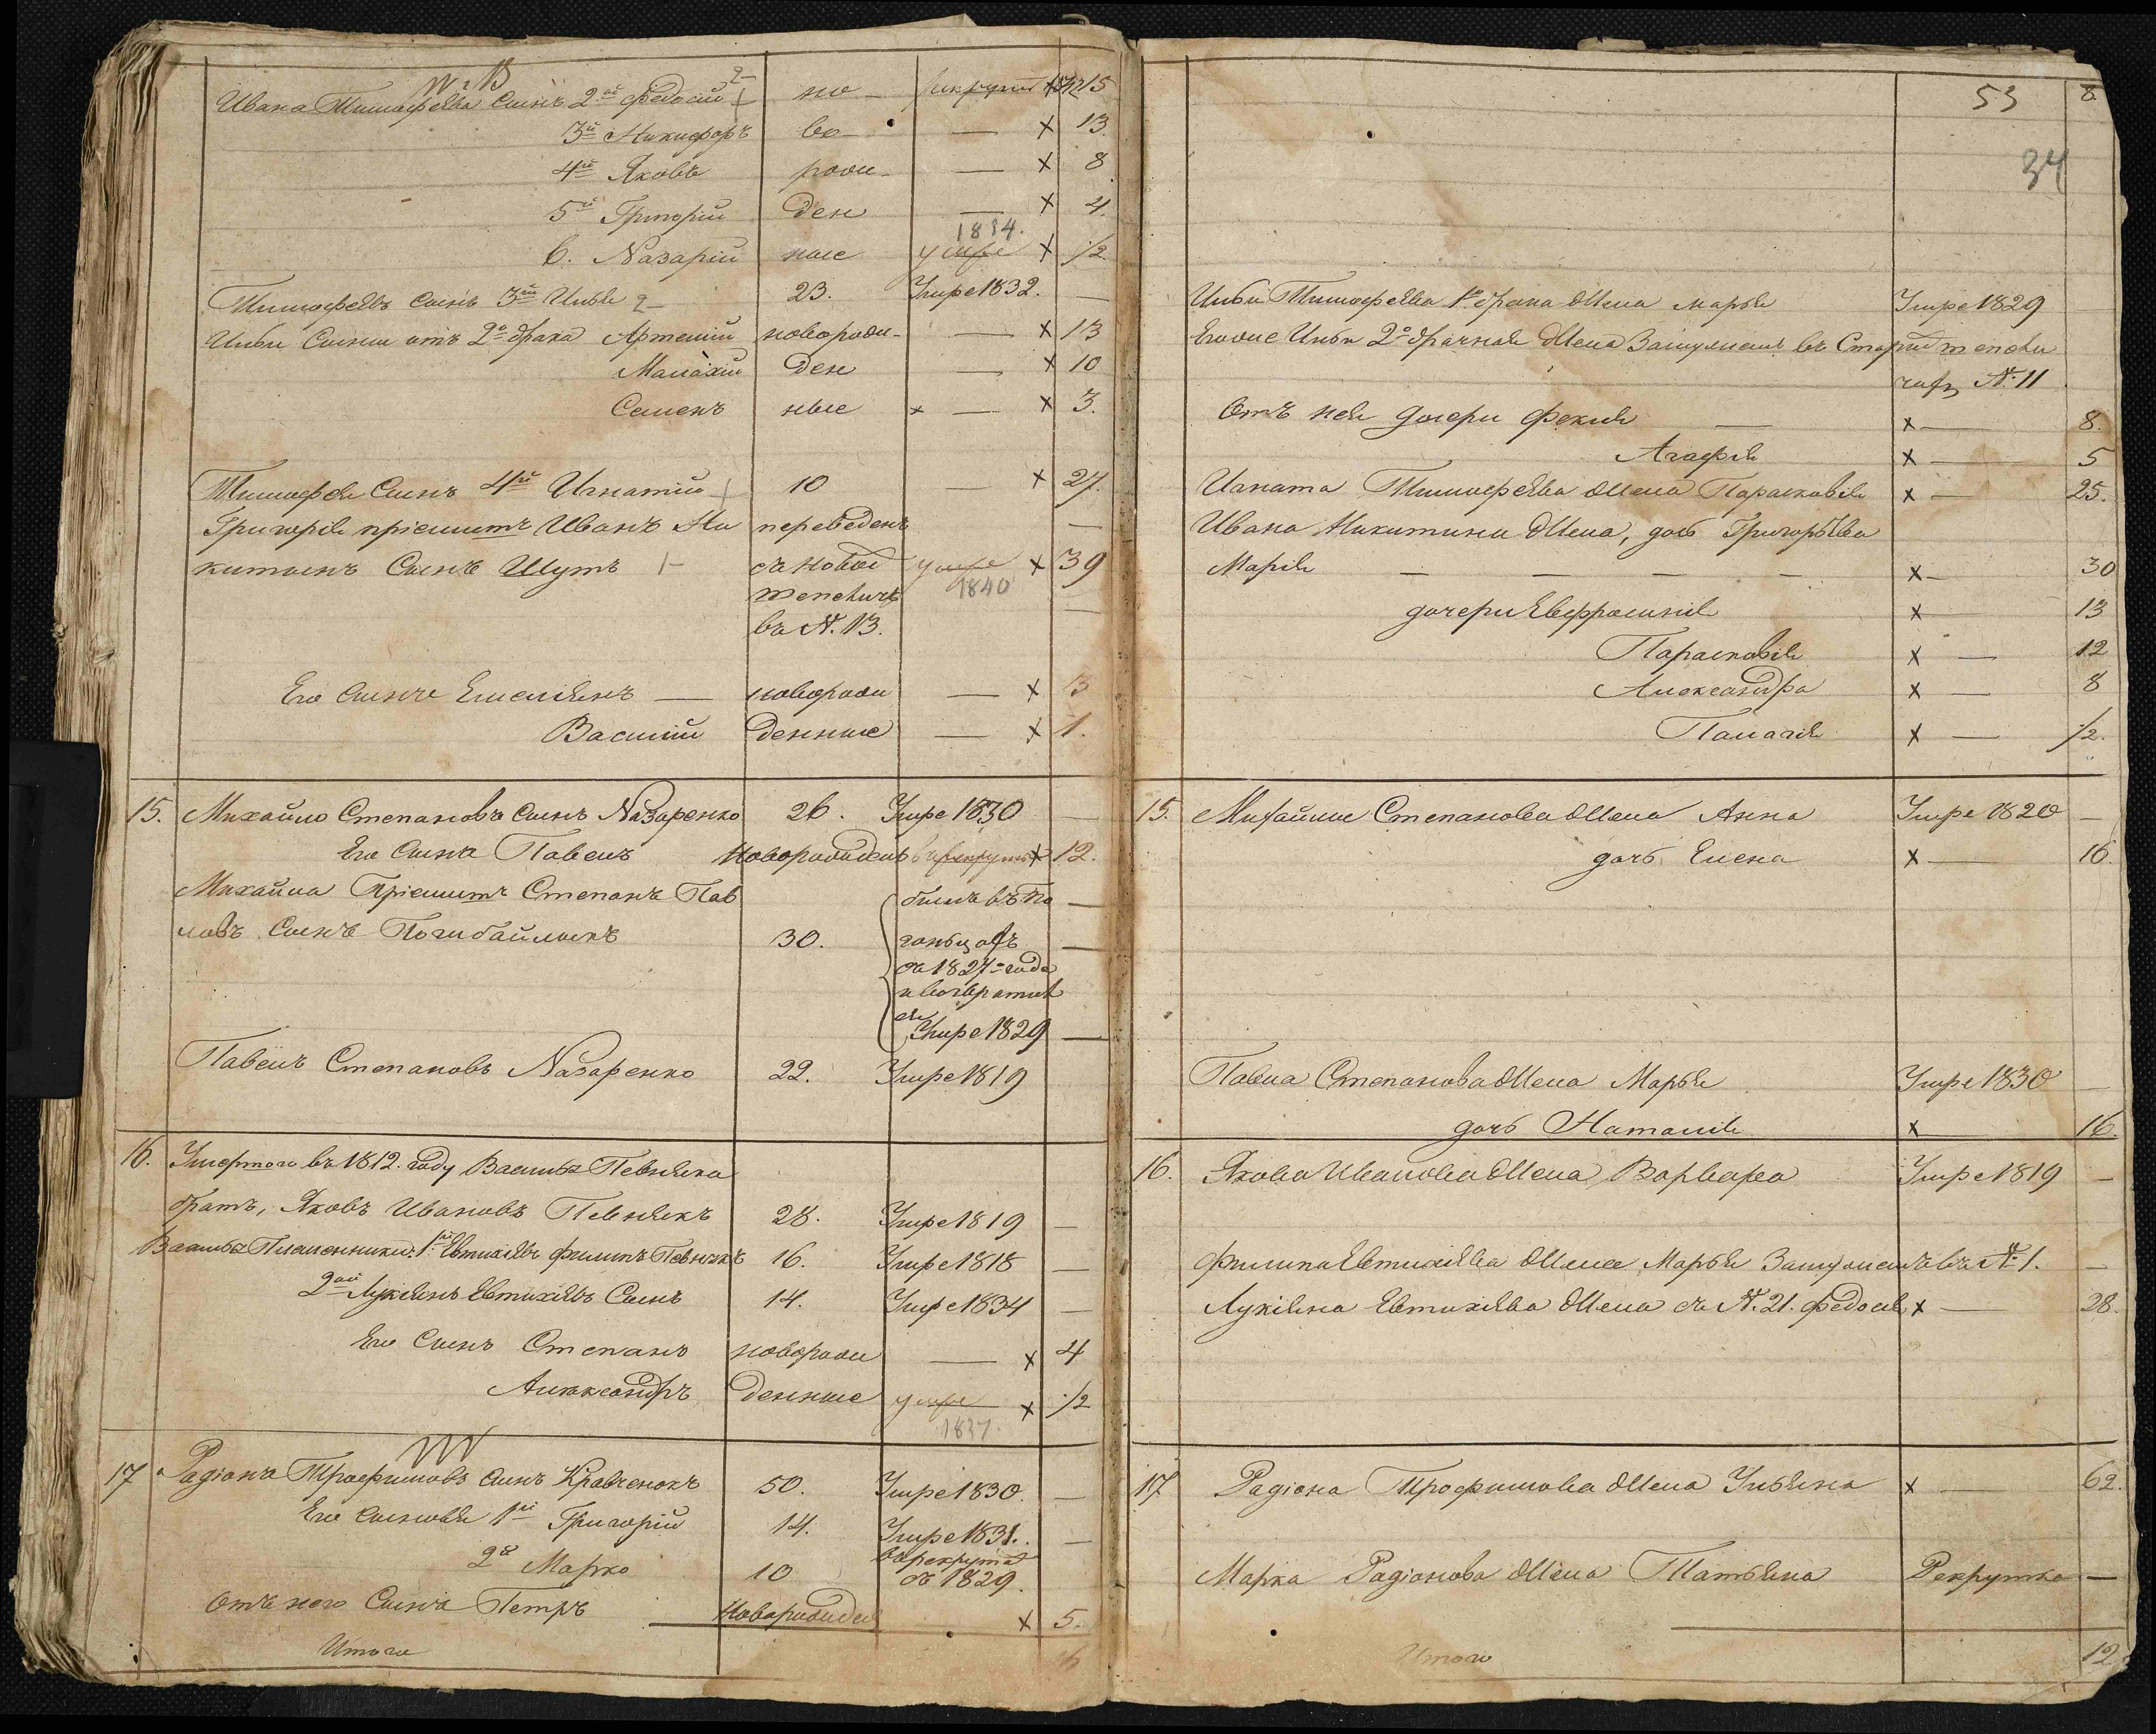 Ивана Тимофеева сынъ 2ой Федосій 2 но рекрутъ 15
3й Никифоръ во — × 13.
4й Яковъ рожи- — × 8
5й Григорій ден — × 4.
1834.
6. Назарій ные умре × ½
Тимофеевъ сынъ 3й Илья 2 23. Умре 1832. —
Ильи сыны отъ 2го брака Артемій новорожи- — × 13
Малахій ден — × 10
Семенъ ные × — × 3.
Тимофея сынъ 4й Игнатій 10 — × 27.
Григорія пріемышъ Иванъ Ни переведенъ —
китинъ сынъ Шутъ съ новой умре × 39
1840
въ №. 13.
Его сынъ Емеліянъ — новорожи — × 3
Василій денные — × 1.
15. Михайло Степановъ сынъ Назаренко 26. Умре 1830 —
Его сынъ Павелъ новорожденъ в рекруты × 12.
Михайла пріемышъ Степанъ Пав былъ въ по —
ловъ сынъ Погибайлыкъ 30. гонцахъ —
съ 1827го года
и возвратил
ся
Умре 1829 —
Павелъ Степановъ Назаренко 22. Умре 1819
16. Умершаго въ 1812. году Василья Певняка
братъ, Яковъ Ивановъ Певнякъ 28. Умре 1819 —
Василья Племенники: 1й Евтихіевъ Филипъ Певнякъ 16. Умре 1818 —
2ой Лукіянъ Евтихіевъ сынъ 14. Умре 1834 —
Его сынъ Степанъ новорожи — × 4
Александръ денные умре × ½
1837.
17 Радіонъ Трофимовъ сынъ Кравченокъ 50. Умре 1830. —
Его сыновья 1й Григорій 14. Умре 1831. —
2й Марко 10 въ рекрутах
съ 1829.
Отъ него сынъ Петръ новорожден × 5.
Итого 16
53 8.
34
Ильи Тимофеева 1го брака жена Марья Умре 1829
Его же Ильи 2о брачная жена Замужемъ въ Старой
№. 11
Отъ нея дочери Фекія — × — 8.
Агафія × — 5
Игната Тимофеева жена Парасковія × — 25.
Ивана Никитина жена, дочь Григорьева
Марія — — — — × — 30
дочери Евфросинія × — 13
Парасковія × — 12
Александра × — 8
Палагія × — ½.
15. Михайлы Степанова жена Анна Умре 1820 —
дочь Елена × — 16.
Павла Степанова жена Марья Умре 1830 —
дочь Наталія × 16.
16. Якова Иванова жена Варвара Умре 1819 —
Филипа Евтихіева жена Марья Замужемъ въ №. 1. —
Лукіяна Евтихіева жена съ №. 21. Федосія × — 28.
17. Радіона Трофимова жена Ульяна × — 62.
Марка Радіонова жена Татьяна Рекрутка —
Итого 12